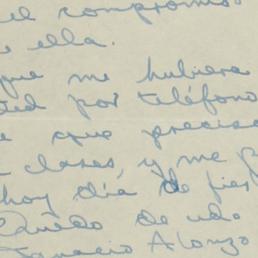 el compromiso
e ella.
que me hubiera
ted por teléfono
e que precisa
clases, y me p
hoy día de fies
Quedo de ud.
Ignacio Alonzo